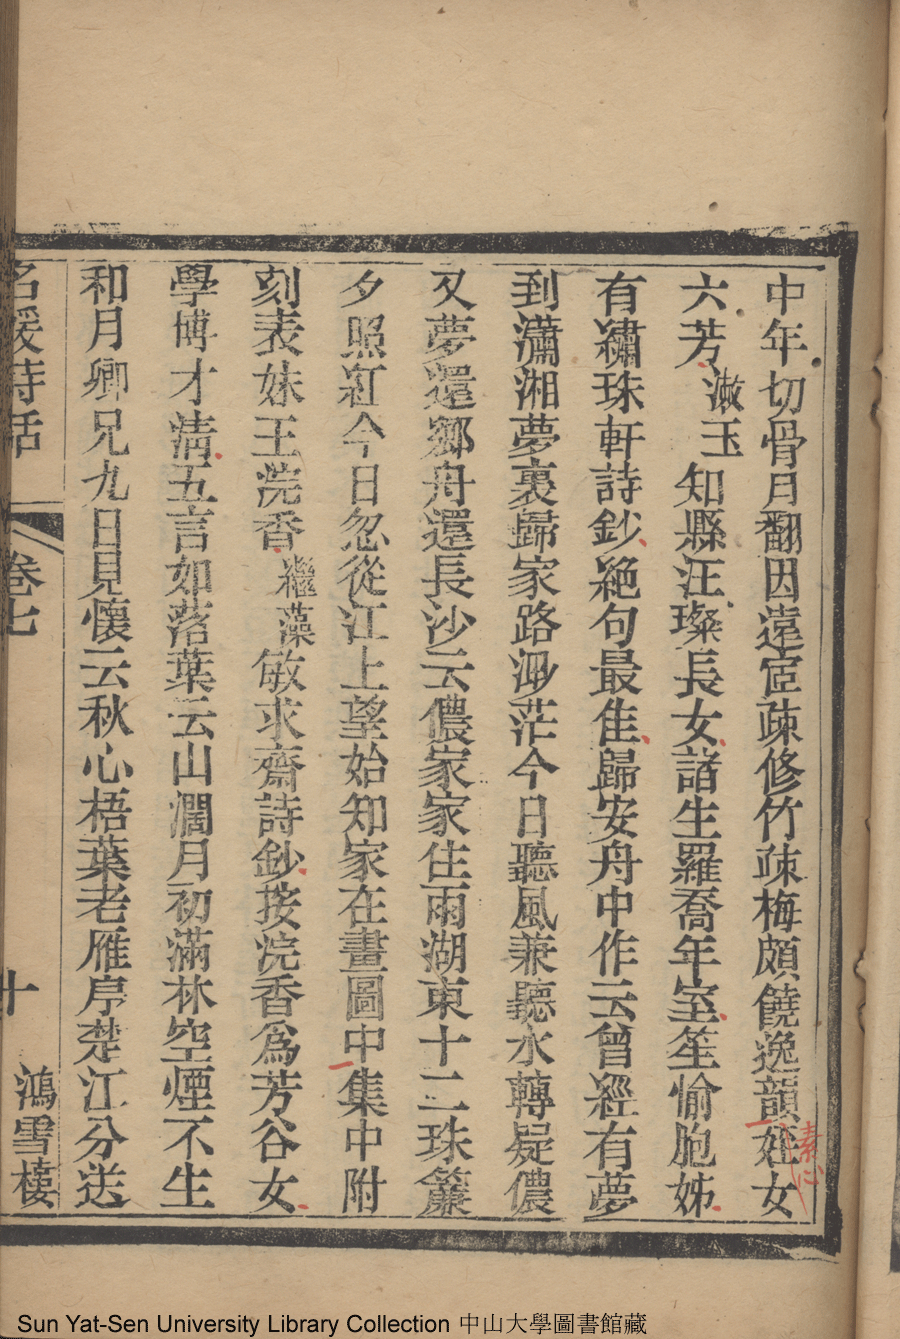 中年切骨月翻因遠宦疎修竹疎梅頗饒逸韻姪女
素心
六芳漱玉知縣汪璨長女諸生羅喬年室笙愉胞姊
有繡珠軒詩鈔絕句最佳歸安舟中作云曾經有夢
到瀟湘夢裏歸家路渺茫今日聽風兼聽水轉疑儂
又夢還鄉舟還長沙云儂家家住雨湖東十二珠簾
夕照紅今日忽從江上望始知家在畫圖中集中附
刻表妹王浣香繼藻敏求齋詩鈔按浣香為芳谷女
學博才清五言如落葉云山濶月初滿林空煙不生
和月卿兄九日見懷云秋心梧葉老雁序楚江分送
名媛詩話 卷七 十 鴻雪樓
Sun Yat-Sen University Library Collection 中山大學圖書館藏